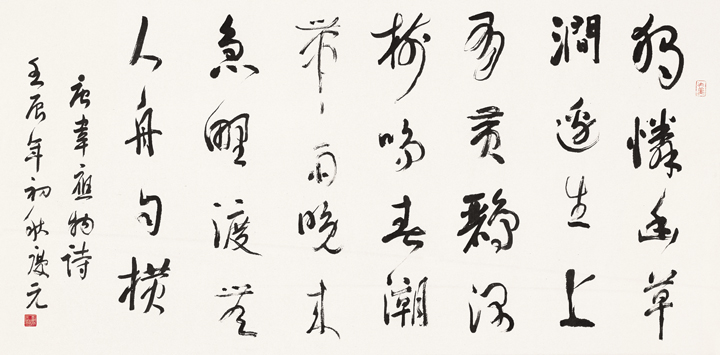 獨憐幽草
澗邊生上
有黃鸝深
樹鳴春潮
帶雨晚來
急野渡無
人舟自橫
唐韋應物詩
壬辰年初秋慶元